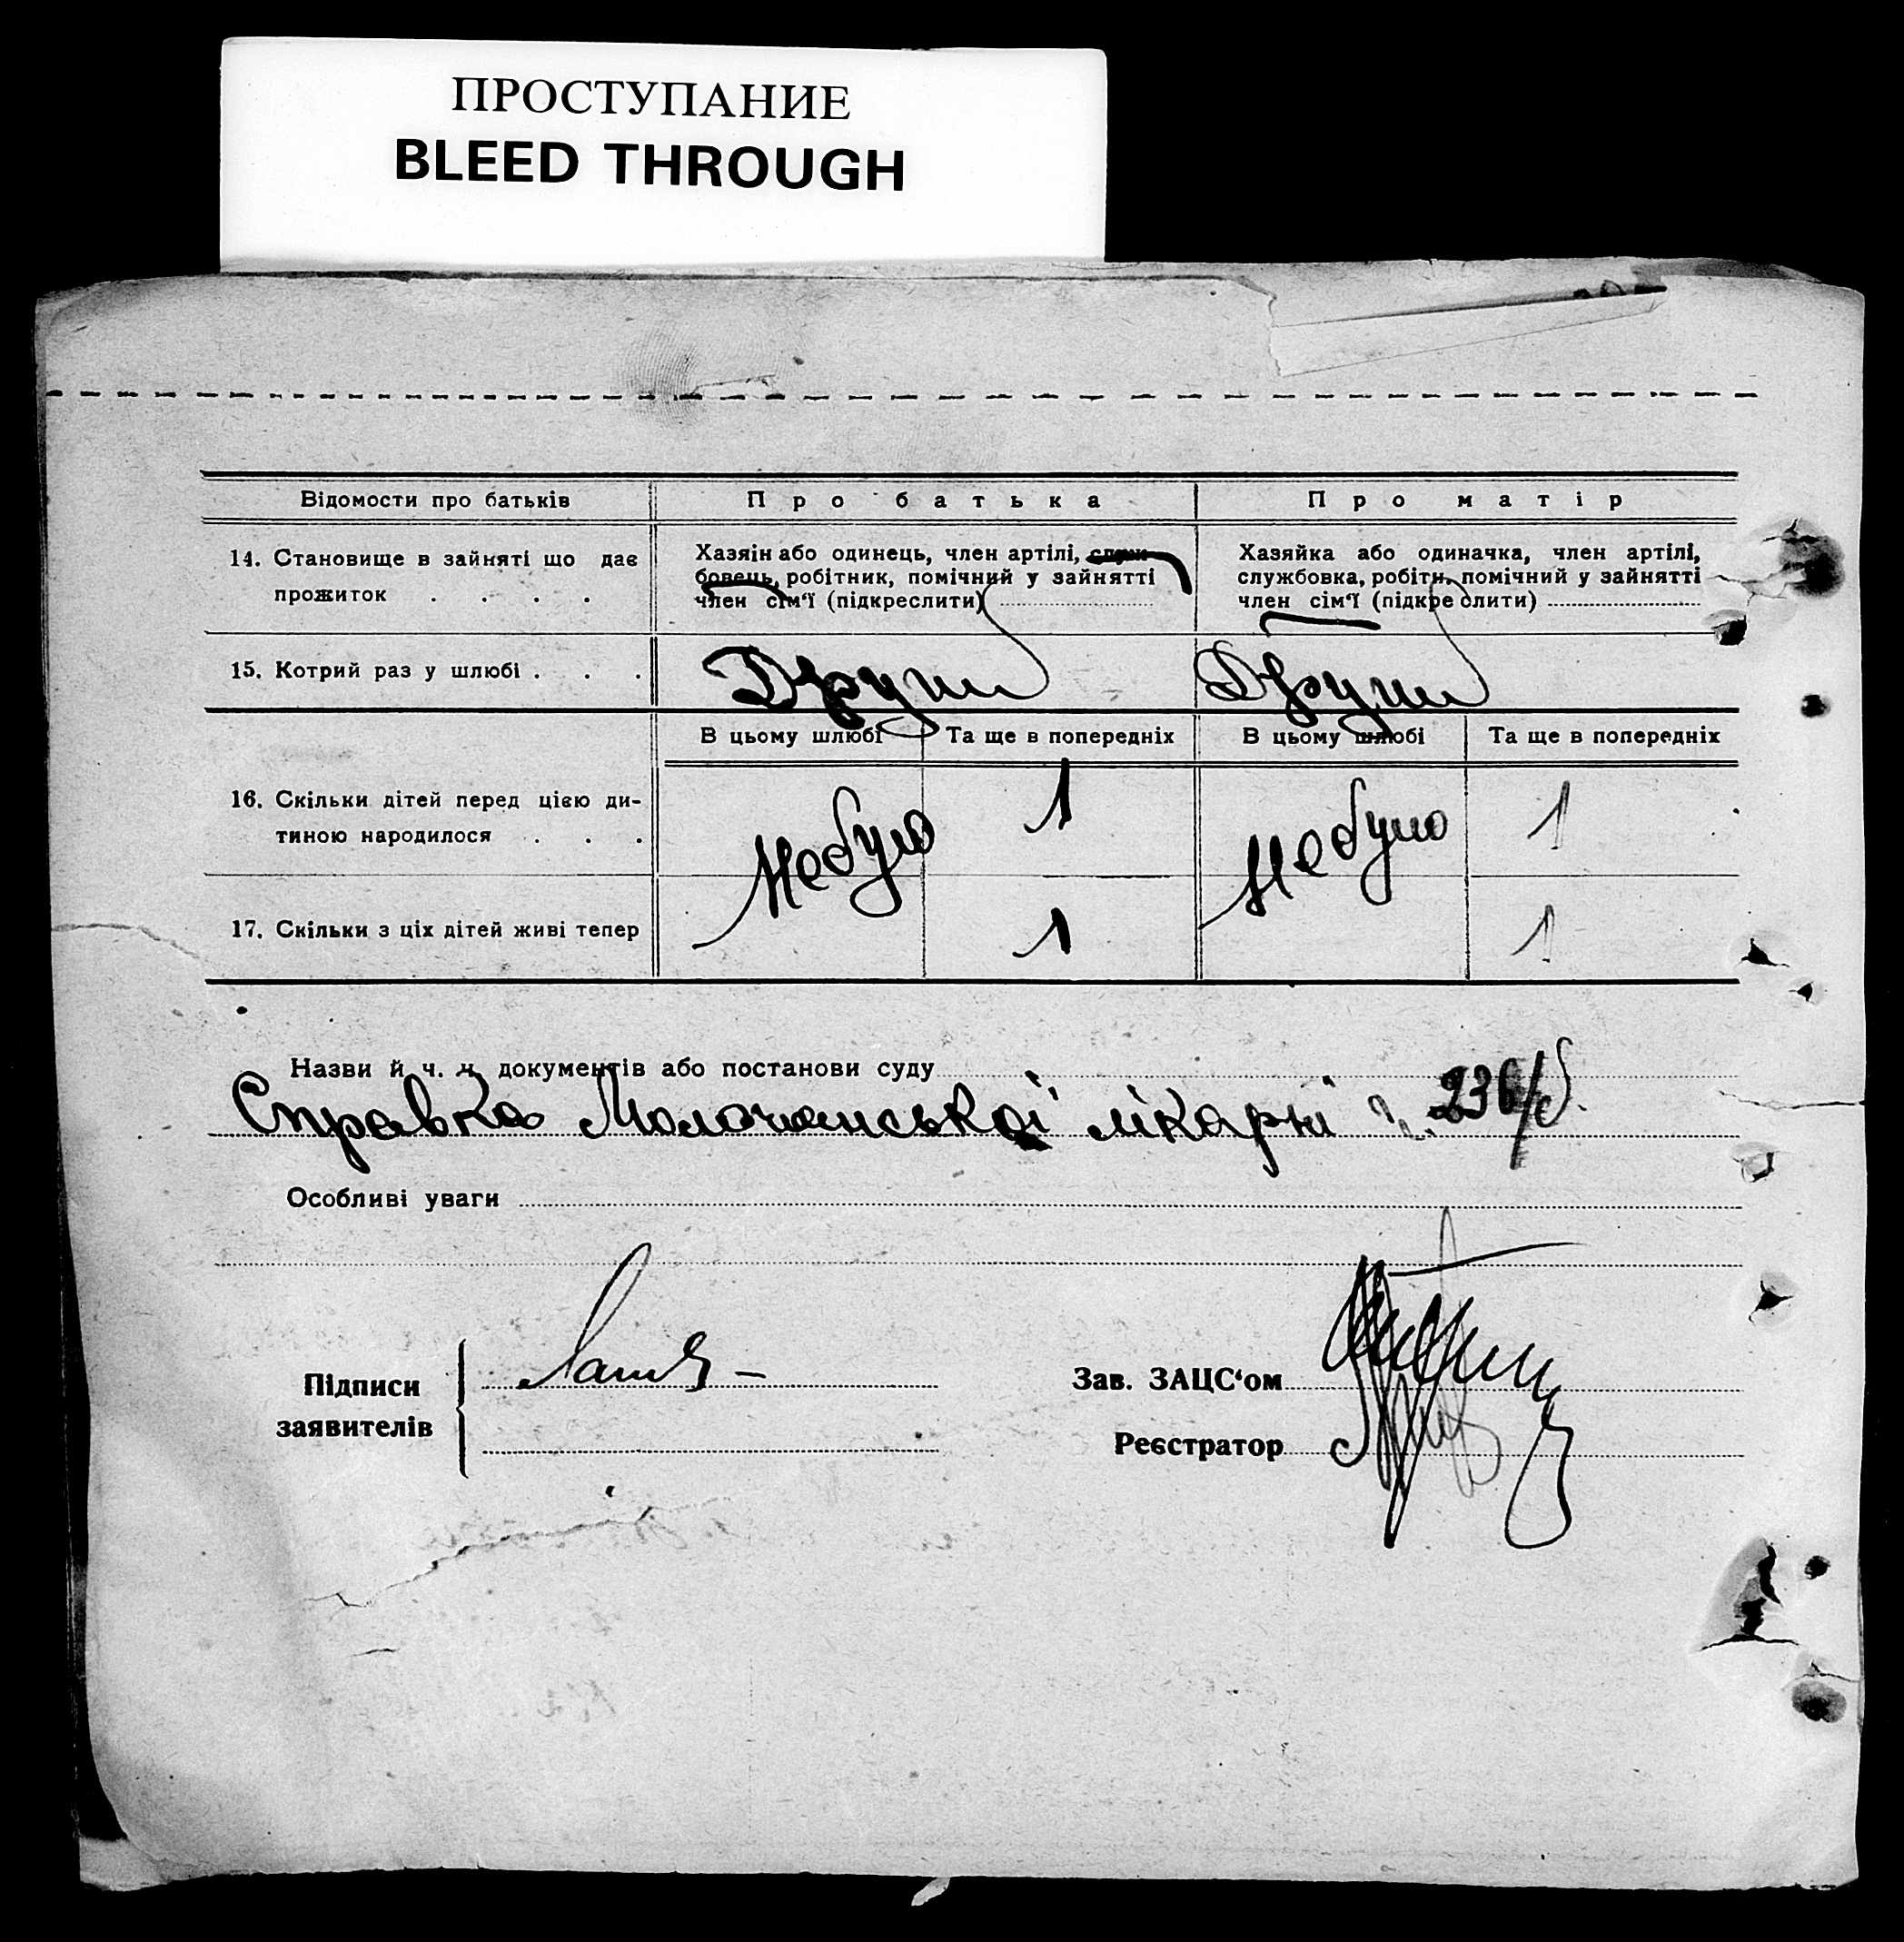 ПРОСТУПАНИЕ
BLEED THROUGH
Відомости про батьків
Про батька
Про матір
14. Становище в зайняті що дає
прожиток . . . .
Хазяїн або одинець, член артілі, служ-
бовець, робітник, помічний у зайнятті
член сім'ї (підкреслити)
Хазяйка або одиначка, член артілі,
службовка, робітн. помічний у зайнятті
член сім'ї (підкреслити)
15. Котрий раз у шлюбі . . .
Другий
Другий
В цьому шлюбі
Та ще в попередніх
В цьому шлюбі
Та ще в попередніх
16. Скільки дітей перед цією ди-
тиною народилося . . .
Небуло
1
Небуло
1
17. Скільки з ціх дітей живі тепер
1
1
Назви й ч. ч. документів або постанови суду
Справка Молочанської лікарні 236/
Особливі уваги
Підписи
заявителів
Зав. ЗАЦС'ом
Реєстратор